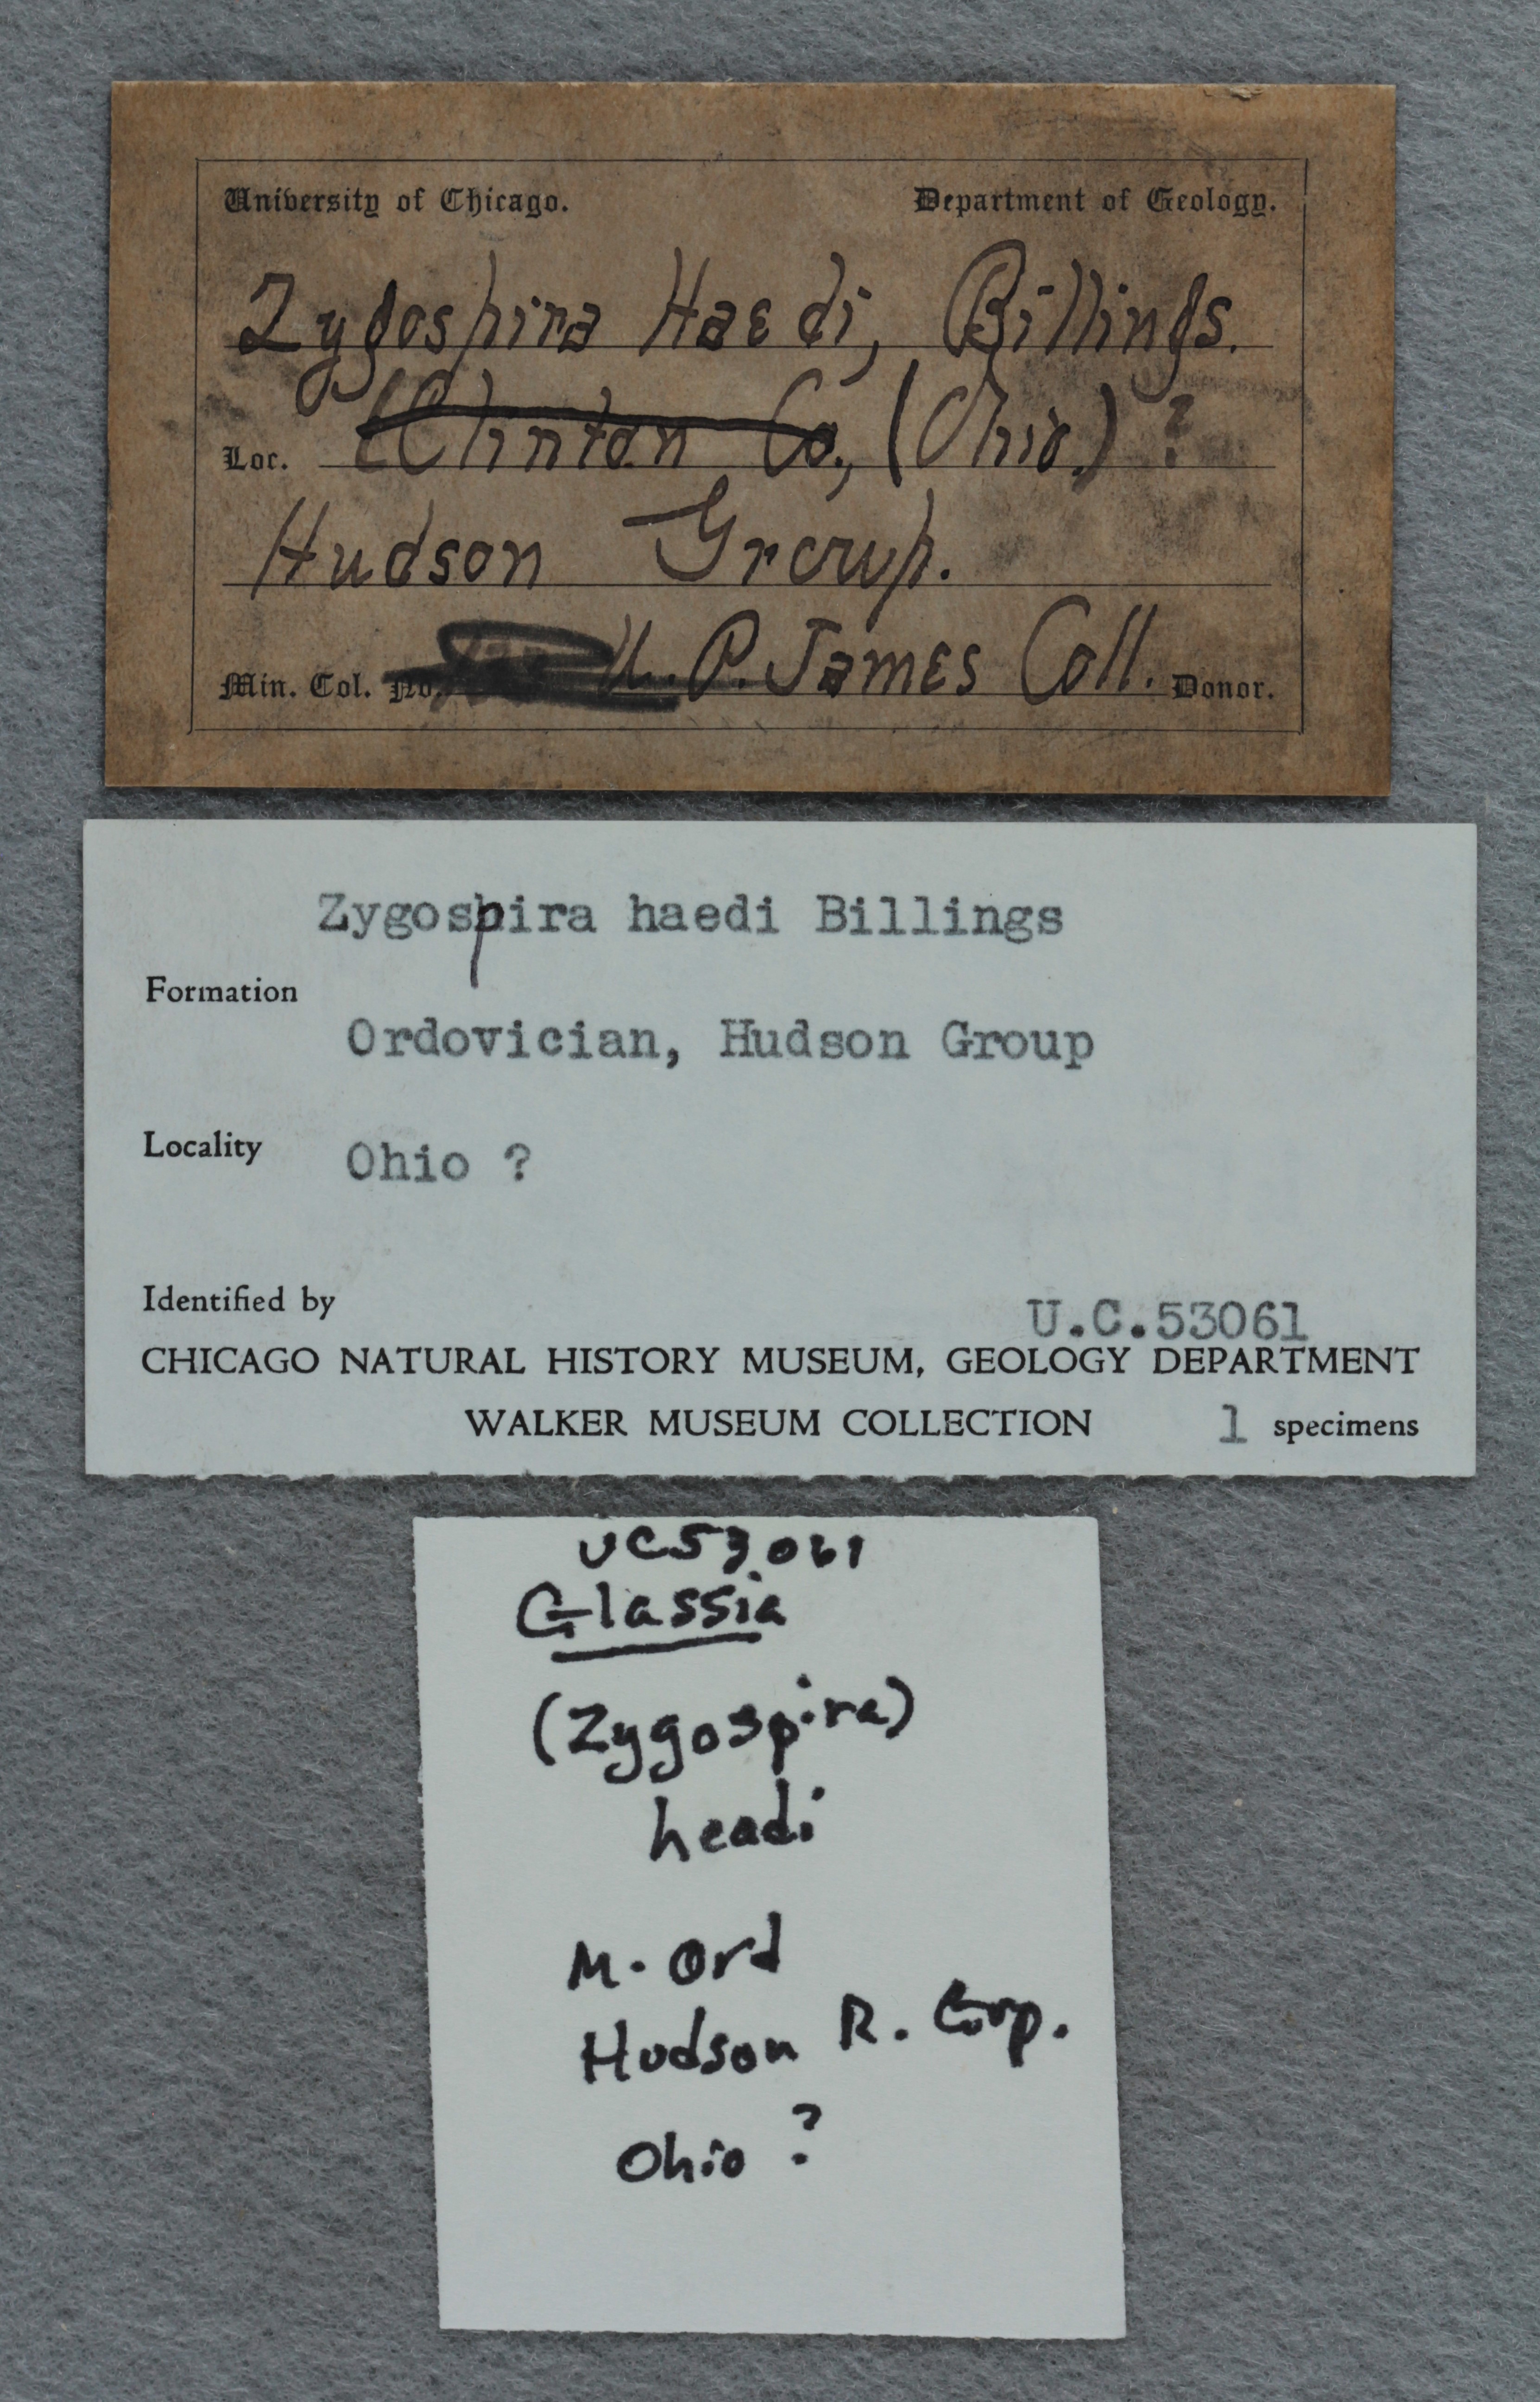 University of Chicago. Department of Geology.
Zygospira Haedi, Billings.
Loc. (Clinton Co., (Ohio.) ?
Hudson Group.
Min. Col. No. U. P. James Coll. Donor.
Zygospira haedi Billings
Formation
Ordovician, Hudson Group
Locality Ohio ?
Identified by U.C.53061
CHICAGO NATURAL HISTORY MUSEUM, GEOLOGY DEPARTMENT
WALKER MUSEUM COLLECTION 1 specimens
UC53061
Glassia
(Zygospira)
headi
M. Ord
Hudson R. Grp.
Ohio ?